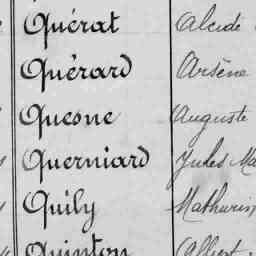 Quérat Alcide
Quérard Arsène
Quesne Auguste
Querniard Jules Ma
Quily Mathurin
Quinton Albert